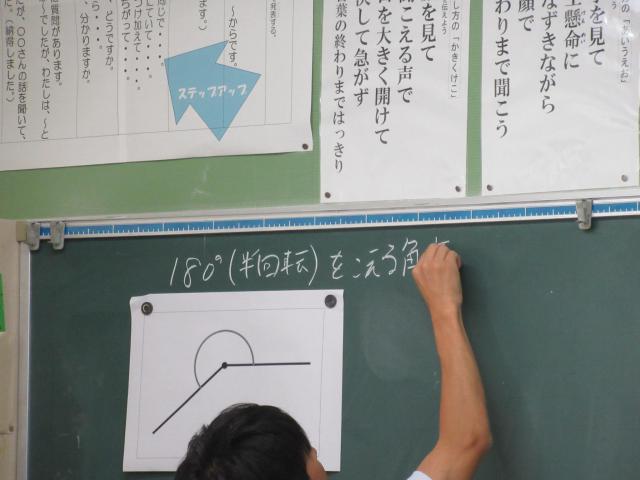 の「かいうえお」
を見て
生懸命に
なずきながら
顔で
わりまで聞こう
し方の「かきくけこ」
を伝えよう
を見て
こえる声で
を大きく開けて
決して急がず
葉の終わりまではっきり
発表する。
ます。）
～からです。
ステップアップ
同じで・・・
にていて・・・
つけ加えて・・・
ちがって・・・
、どうですか。
ら、分かりますか。
質問があります。
～でしたが、わたしは、～と
たが、〇〇さんの話を聞いて、
た。（納得しました。）
180°(半回転)をこえる角